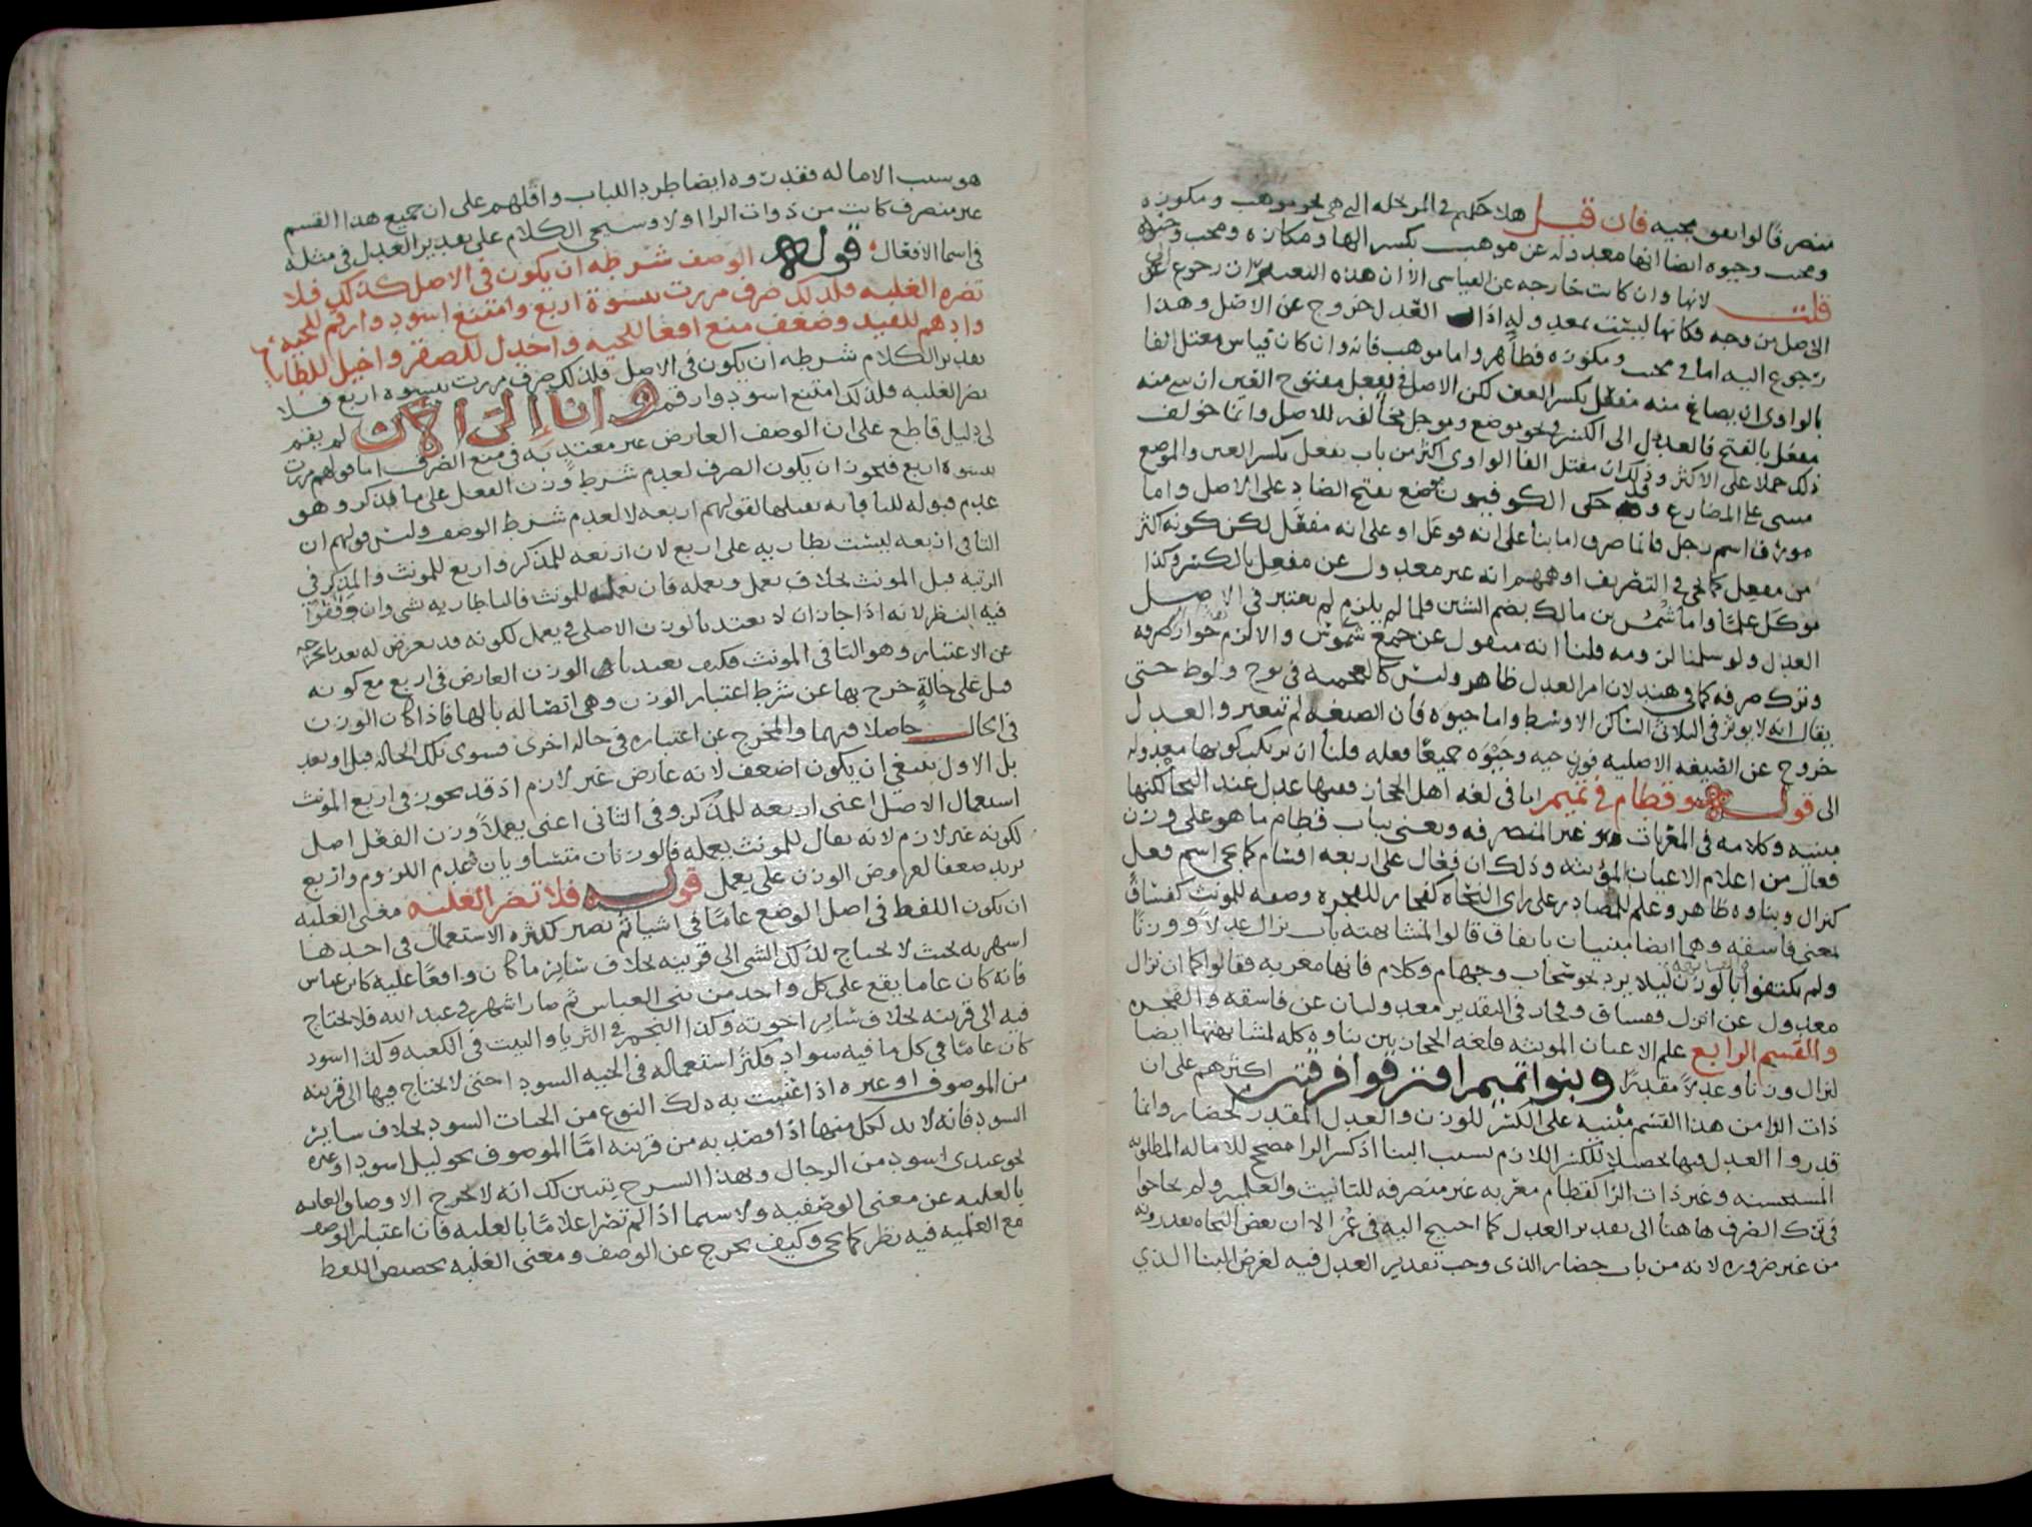 فان قيل هلا حكم في المرتجله التي هي نحو موهب ومكوزه
ومحبب وحيوه ايضا انها معدوله عن موهب بكسر الها ومكازه ومحب وحيه
قلت لانها وان كانت خارجه عن القياس الا ان هذه ان رجوع الى
الاصل من وجه فكانها ليست بمعدوله اذ العدل خروج عن الاصل وهذا
رجوع اليه اما في محبب ومكوزه فظاهر واما موهب فانه وان كان قياس معتل الفا
بالواو ان يصاغ منه مفعل بكسر العين لكن الاصل في يفعل مفتوح العين ان منه
مفعل بالفتح فالعدول الى الكسر في نحو موضع وموجل مخالفه للاصل وانما خولف
ذلك حملا على الاكثر وذلك ان معتل الفا الواوي اكثر من باب يفعل بكسر العين والموضع
مبني على المضارع وقد حكى الكوفيون موضع بفتح الضاد على الاصل واما
مورق اسم رجل فانما صرف اما بنا على انه فوعل او على انه مفعل لكن كونه اكثر
من مفعل كما في التصريف اوهمهم انه غير معدول عن مفعل بالكسر وكذا
موكل علما واما شمس بن مالك بضم الشين فلما لم يلزم لم يعتبر في الاصل
العدل ولو سلمنا لزومه قلنا انه منقول عن جمع شموس والا لزم جواز صرفه
وترك صرفه كما في هند لان امر العدل ظاهر وليس كالعجمه في نوح ولوط حتى
يقال انه لا يوثر في الثلاثي الساكن الاوسط واما حيوه فان الصيغه لم تتغير والعدل
خروج عن الصيغه الاصليه فوزن حيه وحيوه جميعا فعله قلنا ان نرتكب كونها معدوله
الى قوله وقطام في تميم اما في لغه اهل الحجاز ففيها عدل عند النحاه لكنها
مبنيه وكلامه في المعربات غير المنصرفه ويعني بباب قطام ما هو على وزن
فعال من اعلام الاعيان المؤنثه وذلك ان فعال على اربعه اقسام كما يجي اسم فعل
كنزال وبناوه ظاهر وعلم للمصادر على راي النحاه كفجار للفجره وصفه للمونث كفساق
بمعنى فاسقه وهما ايضا مبنيان باتفاق قالوا لمشابهته باب نزال عدلا ووزنا
ولم يكتفوا بالوزن ليلا يرد نحو سحاب وجهام وكلام فانها معربه فقالوا كما ان نزال
معدول عن انزل ففساق وفجار في التقدير معدولان عن فاسقه والفجره
والقسم الرابع علم الاعيان المونثه فلغه الحجازيين بناوه كله لمشابهتها ايضا
لنزال وزنا وعدلا مقدرا وبنو تميم افترقوا فرقتين اكثرهم على ان
ذات الرا من هذا القسم مبنيه على الكسر للوزن والعدل المقدر كحضار وانما
قدروا العدل فيها تحصيلا للكسر اللازم بسبب البنا اذ كسر الرا مصحح للاماله المطلوبه
المستحسنه وغير ذات الرا كقطام معربه غير منصرفه للتانيث والعلميه ولم يحتاجوا
في ترك الصرف هاهنا الى تقدير العدل كما احتيج اليه في عمر الا ان بعض النحاه يقدرونه
من غير ضروره لانه من باب حضار الذي وجب تقدير العدل فيه لغرض البنا الذي
هو سبب الاماله فقدروه ايضا طردا للباب واقلهم على ان جميع هذا القسم
غير منصرف كانت من ذوات الرا او لا وسيجي الكلام على تقدير العدل في مثله
في اسما الافعال قوله الوصف شرطه ان يكون في الاصل كذلك فلا
تضره الغلبه فلذلك صرف مررت بنسوه اربع وامتنع اسود وارقم للحيه
وادهم للقيد وضعف منع افعا للحيه واجدل للصقر واخيل للطاير
تقدير الكلام شرطه ان يكون في الاصل فلذلك صرف مررت بنسوه اربع فلا
تضر الغلبه فلذلك امتنع اسود وارقم وانا الى الان لم يقم
لي دليل قاطع على ان الوصف العارض غير معتد به في منع الصرف اما قولهم مررت
بنسوه اربع فيجوز ان يكون الصرف لعدم شرط وزن الفعل على ما يذكر وهو
عدم قبوله للتا فانه يقبلها لقولهم اربعه لا لعدم شرط الوصف وليس قولهم ان
التا في اربعه ليست بطاريه على اربع لان اربعه للمذكر واربع للمونث والمذكر في
الرتبه قبل المونث بخلاف يعمل ويعمله فان يعمله للمونث فالتا طاريه بشي وان وقفوا
فيه النظر لانه اذا جاز ان لا يعتد بالوزن الاصلي في يعمل لكونه قد يعرض له بعد ما يخرجه
عن الاعتبار وهو التا في المونث فكيف يعتد بالوزن العارض في اربع مع كونه
قبل على حاله خرج بها عن شرط اعتبار الوزن وهي اتصاله بالها فاذا كان الوزن
في الحال حاصلا فيهما والمخرج عن اعتباره في حاله اخرى فسوى تلك الحاله قبل او بعد
بل الاول ينبغي ان يكون اضعف لانه عارض غير لازم اذ قد يجوز في اربع المونث
استعمال الاصل اعني اربعه للمذكر وفي الثاني اعني يعملا وزن الفعل اصل
لكونه غير لازم لانه يقال للمونث يعمله فالوزنان متساويان في عدم اللزوم واربع
يزيد ضعفا لعروض الوزن على يعمل قوله فلا تضر الغلبه معنى الغلبه
ان يكون اللفظ في اصل الوضع عاما في اشيا ثم تصير بكثره الاستعمال في احدها
اشهر به بحيث لا يحتاج لذلك الشي الى قرينه بخلاف ساير ما كان واقعا عليه كابن عباس
فانه كان عاما يقع على كل واحد من بني العباس ثم صار اشهر في عبد الله فلا يحتاج
فيه الى قرينه بخلاف ساير اخوته وكذا النجم في الثريا والبيت في الكعبه وكذا اسود
كان عاما في كل ما فيه سواد فكثر استعماله في الحيه السودا حتى لا يحتاج فيها الى قرينه
من الموصوف او غيره اذا عنيت به ذلك النوع من الحيات السود بخلاف ساير
السود فانه لا بد لكل منها اذا قصد به من قرينه اما الموصوف نحو ليل اسود او غيره
نحو عندي اسود من الرجال وبهذا الشرح يتبين لك انه لا يخرج الاوصاف العامه
بالغلبه عن معنى الوصفيه ولا سيما اذا لم تصر اعلاما بالغلبه فان اعتبار الوصف
مع العلميه فيه نظر كما يجي وكيف يخرج عن الوصف ومعنى الغلبه تخصيص اللفظ